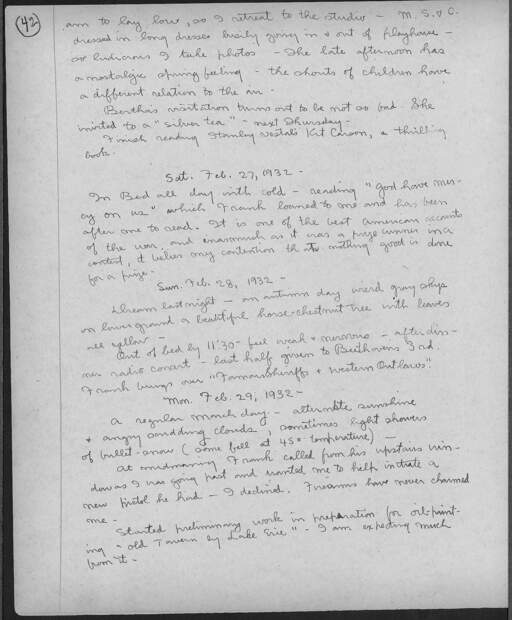 42
am to lay low, so I retreat to the studio – M. S. & C.
dressed in long dresses busily going in & out of playhouse –
so ludicrous I take photos – The late afternoon has
a nostalgic spring feeling – the shouts of children have
a different relation to the air.
Bertha's visitation turns out to be not so bad She
invited to a "silver tea" – next Thursday –
Finish reading Stanley Vestal's Kit Carson, a thrilling
book.
Sat. Feb. 27, 1932 –
In Bed all day with cold – reading "God have mer-
cy on us" which Frank loaned to me and has been
after me to read. It is one of the best American accounts
of the war, and inasmuch as it was a prize winner in a
contest, it belies my contention that nothing good is done
for a prize.
Sun. Feb. 28, 1932 –
Dream last night – an autumn day weird gray skys
on lower ground a beautiful horse-chestnut tree with leaves
all yellow –
Out of bed by 11:30 – feel weak & nervous – after din-
ner radio concert – last half given to Beethoven's 3rd.
Frank brings over "Famous Sheriffs & Western Outlaws".
Mon. Feb. 29, 1932 –
A regular March day – alternate sunshine
& angry scudding clouds, sometimes light showers
of bullet-snow (some fell at 45° temperature) –
At midmorning Frank called from his upstairs win-
dow as I was going past and wanted me to help initiate a
new pistol he had – I declined. Firearms have never charmed
me –
Started preliminary work in preparation for oil-paint-
ing "Old Tavern by Lake Erie" – I am expecting much
from it –